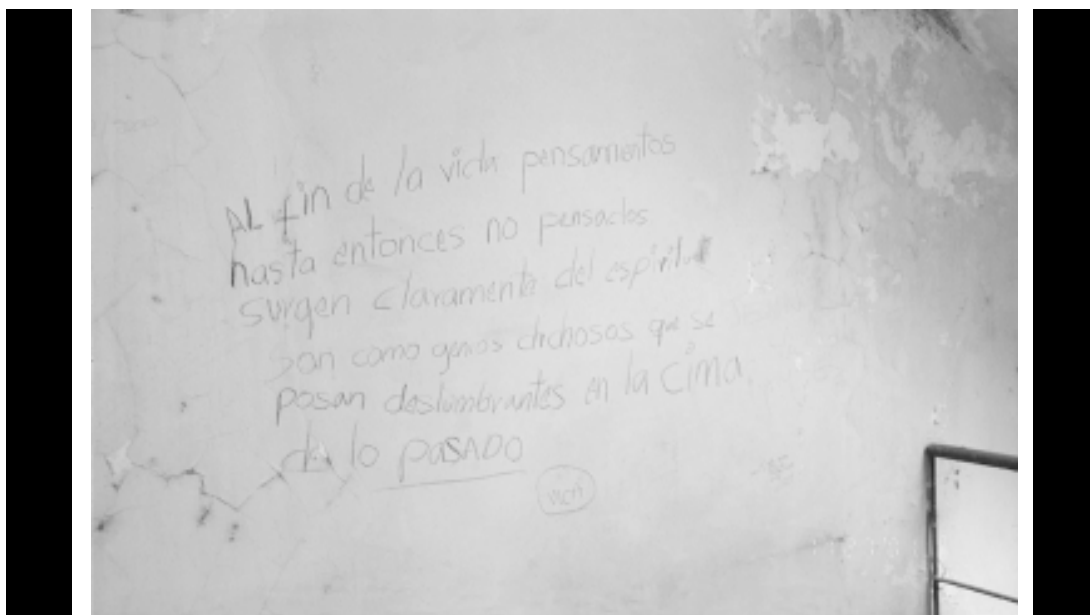 AL fin de la vida pensamientos
hasta entonces no pensados
surgen claramente del espíritu
son como genios dichosos que se
posan deslumbrantes en la cima
de lo PASADO